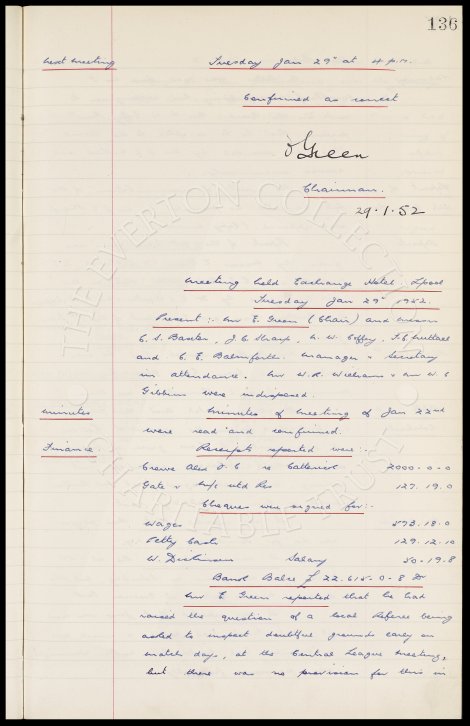 136
Next Meeting Tuesday Jan 29th at 4 p.m.
Confirmed as correct
E Green
Chairman.
29.1.52
Meeting held Exchange Hotel, Lpool
Tuesday Jan 29th 1952.
Present:- Mr E. Green (Chair) and Messrs
C. S. Baxter, J. C. Sharp, N. W. Coffey, F. C. Nuttall
and C. E. Balmforth. Manager & Secretary
in attendance. Mr W. R. Williams & Mr W. C
Gibbins were indisposed.
Minutes Minutes of meeting of Jan 22nd
were read and confirmed.
Finance Receipts reported were:-
Crewe Alex F. C re Catterick 2000-0-0
Gate v L/c Utd Res 127.19.0
Cheques were signed for:-
Wages 593.18.0
Petty Cash 129.12.10
W. Dickinson Salary 50-19.8
Bank Balce £ 22.615-0-8 Dr
Mr E. Green reported that he had
raised the question of a local Referee being
asked to inspect doubtful grounds early on
match days, at the Central League meeting,
but there was no provision for this in
THE EVERTON COLLECTION
CHARITABLE TRUST